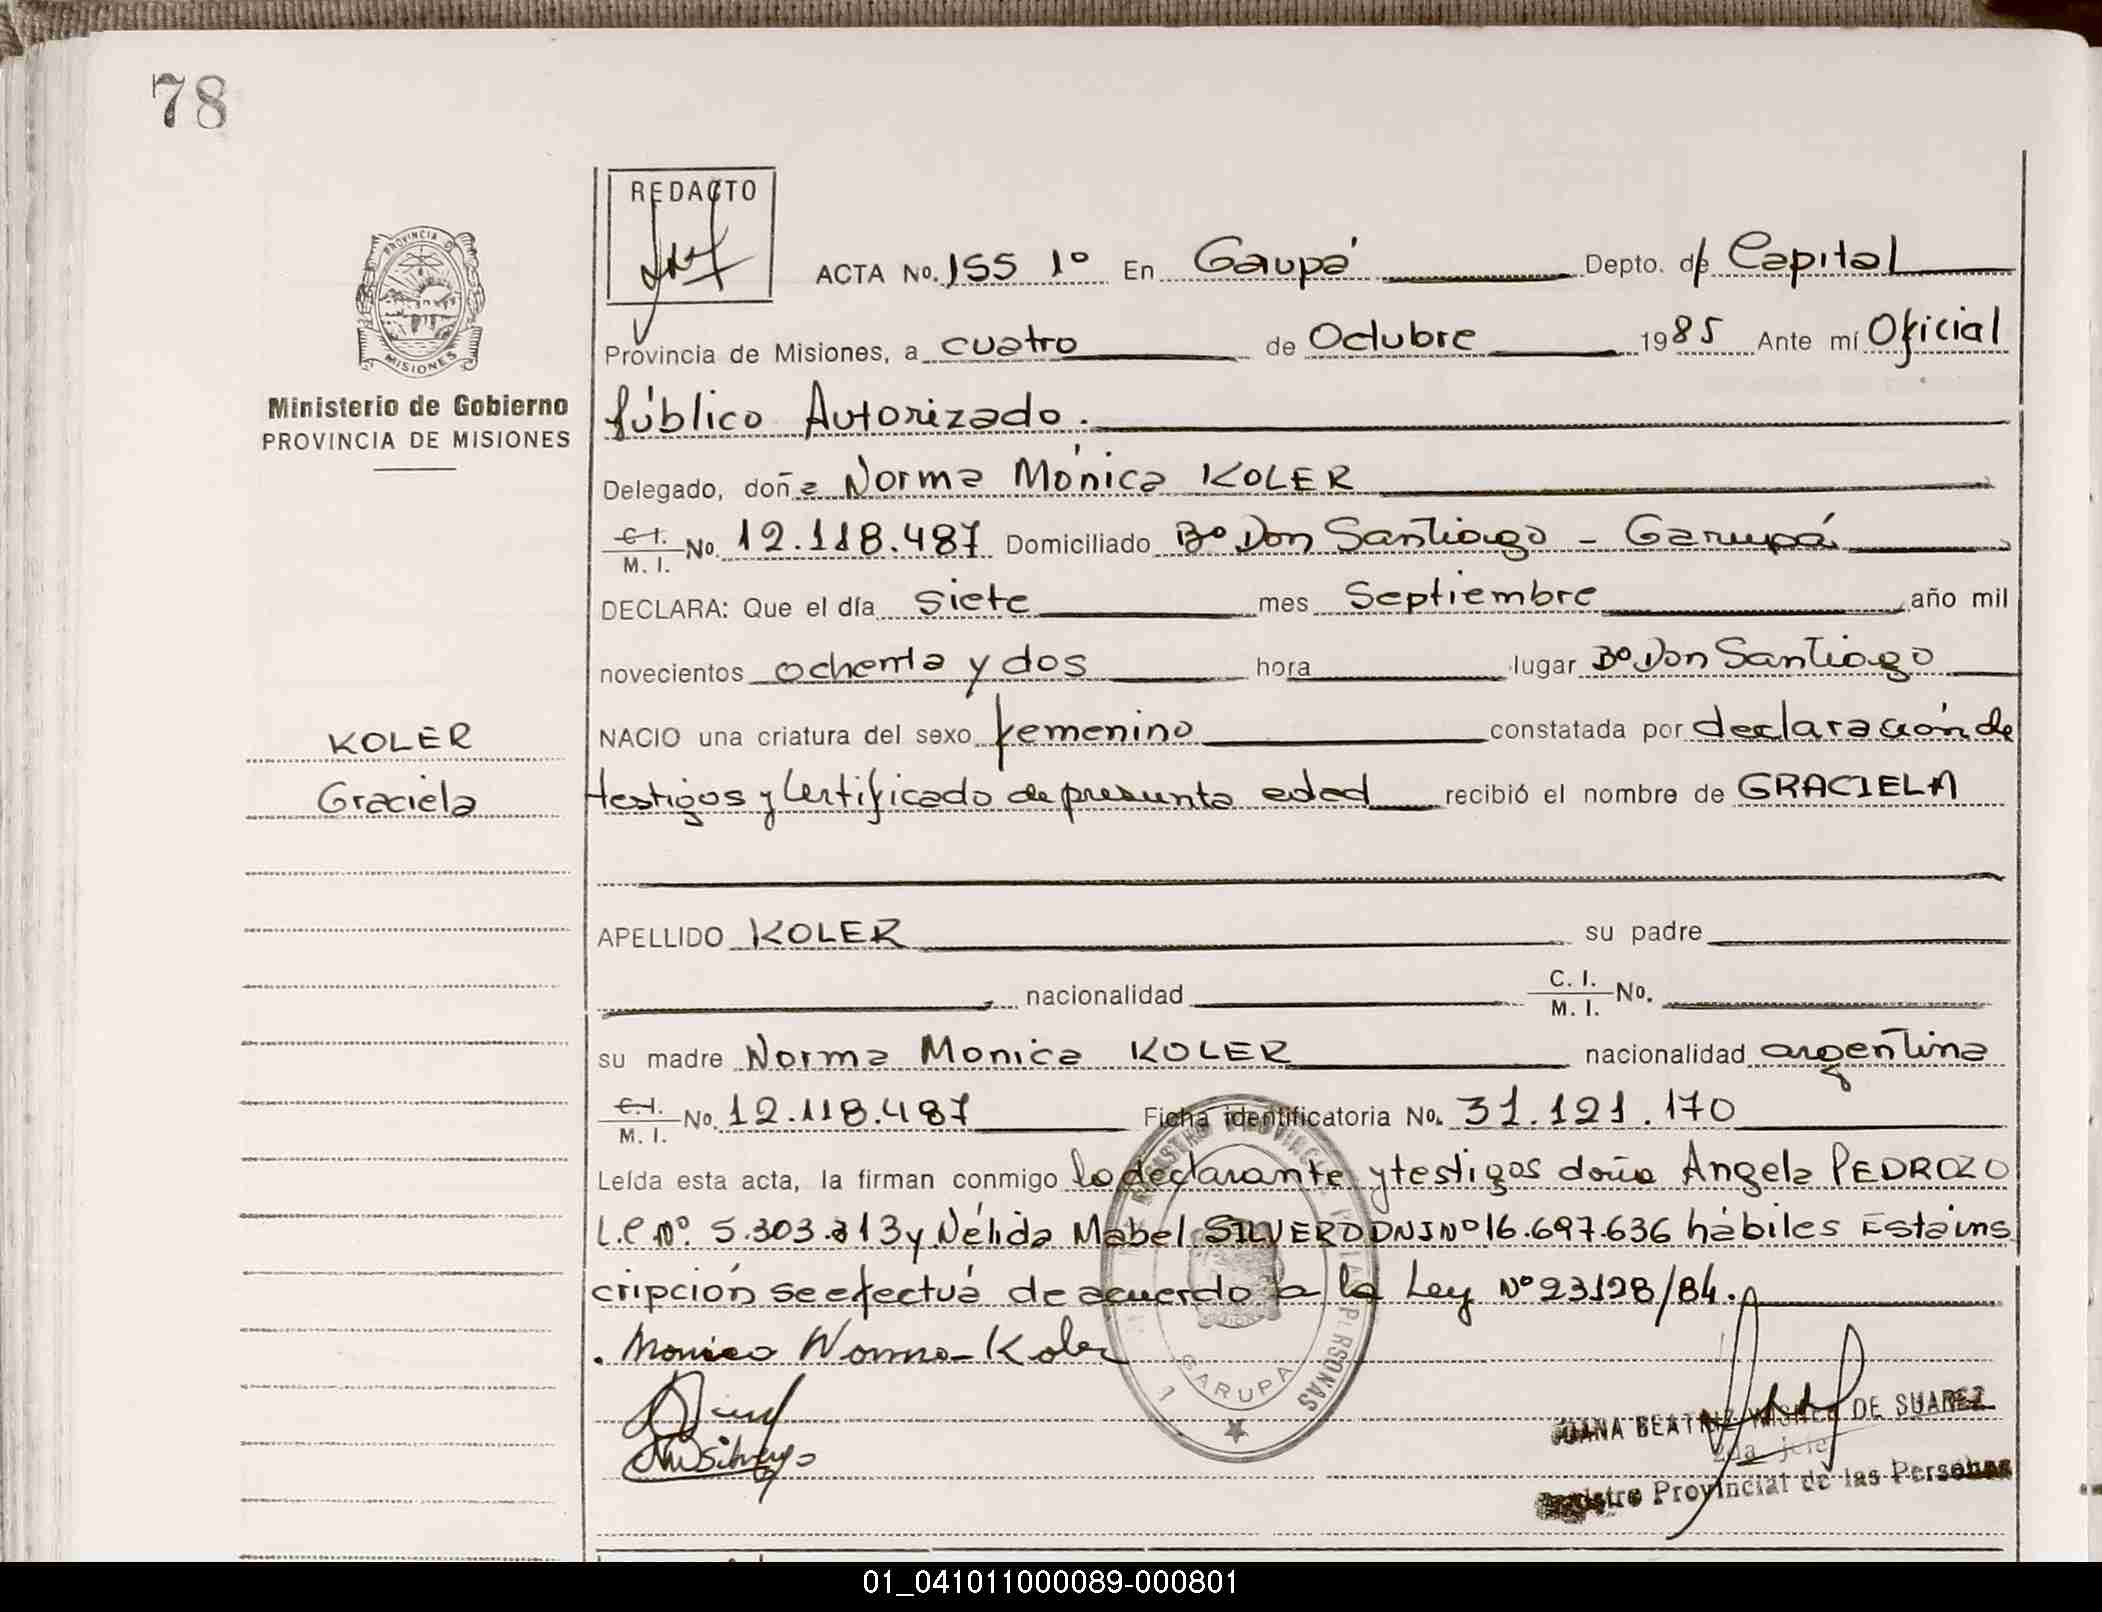 78
REDACTO
ACTA No. 155 1º En Gaupá Depto. de Capital
PROVINCIA D
MISIONES
Provincia de Misiones, a cuatro de Octubre 1985 Ante mí Oficial
Ministerio de Gobierno
PROVINCIA DE MISIONES
Público Autorizado.
Delegado, doña Norma Mónica KOLER
C. I. / M. I. No. 12.118.487 Domiciliado Bº Don Santiago - Garupá
DECLARA: Que el día siete mes Septiembre año mil
novecientos ochenta y dos hora lugar Bº Don Santiago
KOLER
NACIO una criatura del sexo femenino constatada por declaración de
Graciela
testigos y Certificado de presunta edad recibió el nombre de GRACIELA
APELLIDO KOLER su padre
nacionalidad C. I. / M. I. No.
su madre Norma Monica KOLER nacionalidad argentina
C. I. / M. I. No. 12.118.487 Ficha identificatoria No. 31.121.170
Leída esta acta, la firman conmigo la declarante y testigos doña Ángela PEDROZO
L.C Nº. 5.303.313 y Nélida Mabel SILVERO DNI Nº 16.697.636 hábiles Esta ins
cripción se efectuá de acuerdo a la Ley Nº 23128/84.
Monica Norma Koler
GARUPA
JUANA BEATRIZ DE SUAREZ
Registro Provincial de las Personas
01_041011000089-000801